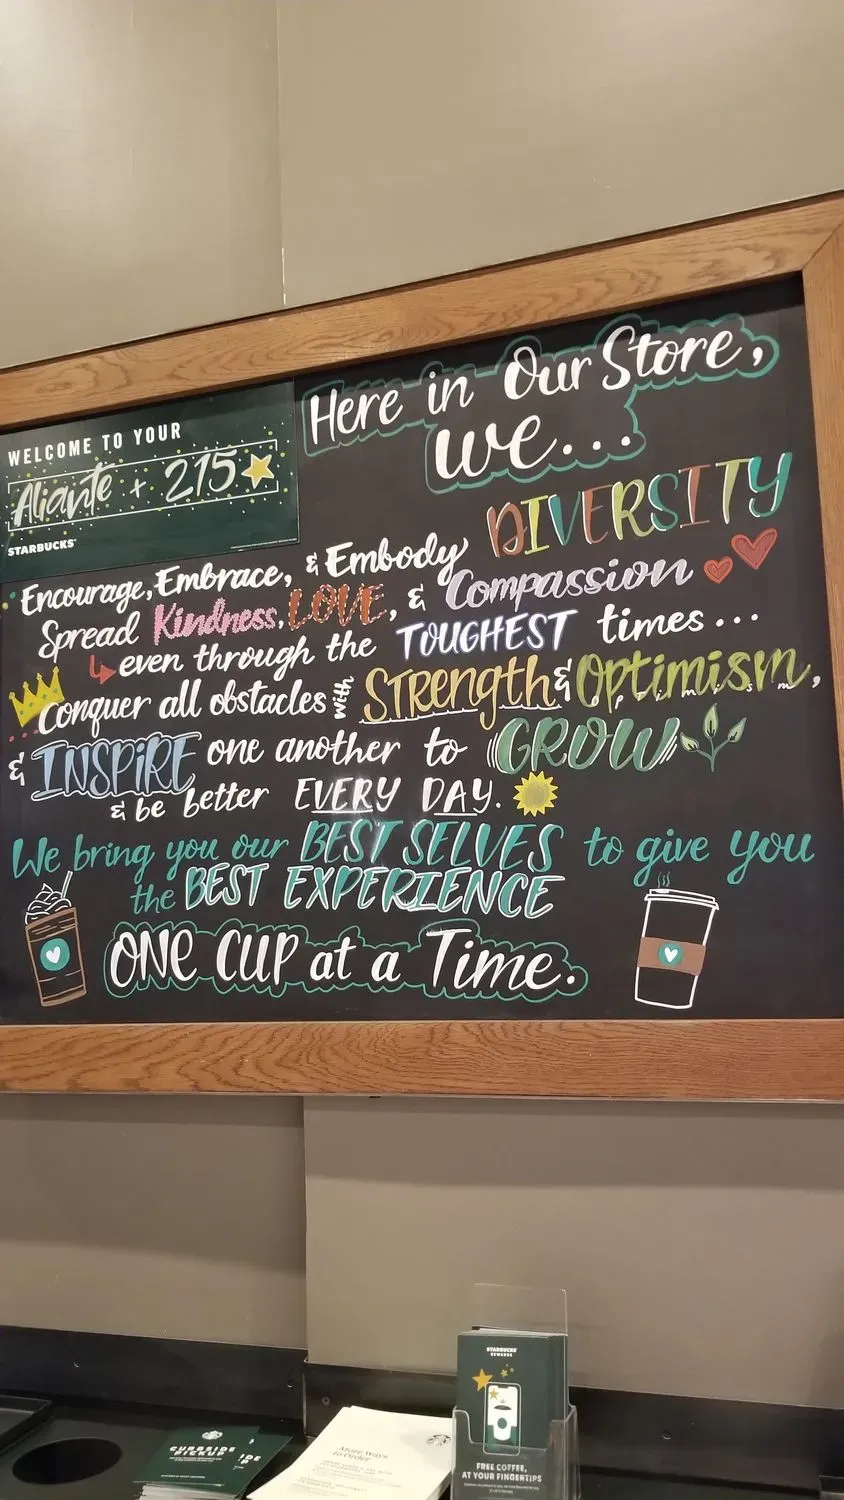 WELCOME TO YOUR
Aliante + 215
STARBUCKS
Here in Our Store,
we...
Encourage, Embrace, & Embody DIVERSITY
Spread Kindness, LOVE, & Compassion
even through the TOUGHEST times...
Conquer all obstacles with Strength & Optimism,
& INSPIRE one another to GROW
& be better EVERY DAY.
We bring you our BEST SELVES to give you
the BEST EXPERIENCE
ONE CUP at a Time.
STARBUCKS
REWARDS
CURBSIDE
PICKUP
More Ways
to Order
FREE COFFEE,
AT YOUR FINGERTIPS